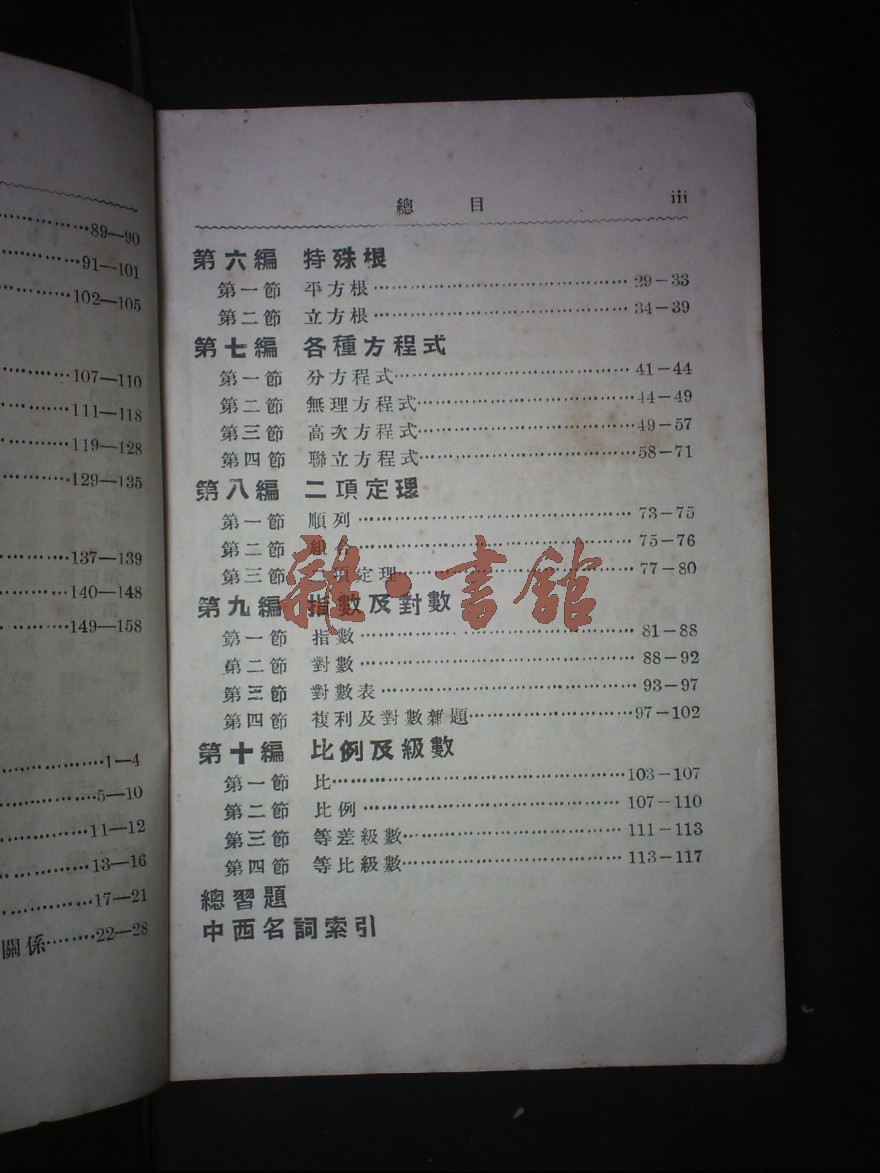 89—90
91—101
102—105
107—110
111—118
119—128
129—135
137—139
140—148
149—158
1—4
5—10
11—12
13—16
17—21
關係········22—28
總 目 iii
第六編 特殊根
第一節 平方根································29—33
第二節 立方根································34—39
第七編 各種方程式
第一節 分方程式······························41—44
第二節 無理方程式····························44—49
第三節 高次方程式····························49—57
第四節 聯立方程式····························58—71
第八編 二項定理
第一節 順列··································73—75
第二節 組合··································75—76
第三節 二項定理······························77—80
第九編 指數及對數
第一節 指數··································81—88
第二節 對數··································88—92
第三節 對數表································93—97
第四節 複利及對數雜題························97—102
第十編 比例及級數
第一節 比····································103—107
第二節 比例··································107—110
第三節 等差級數······························111—113
第四節 等比級數······························113—117
總習題
中西名詞索引
雜·書館